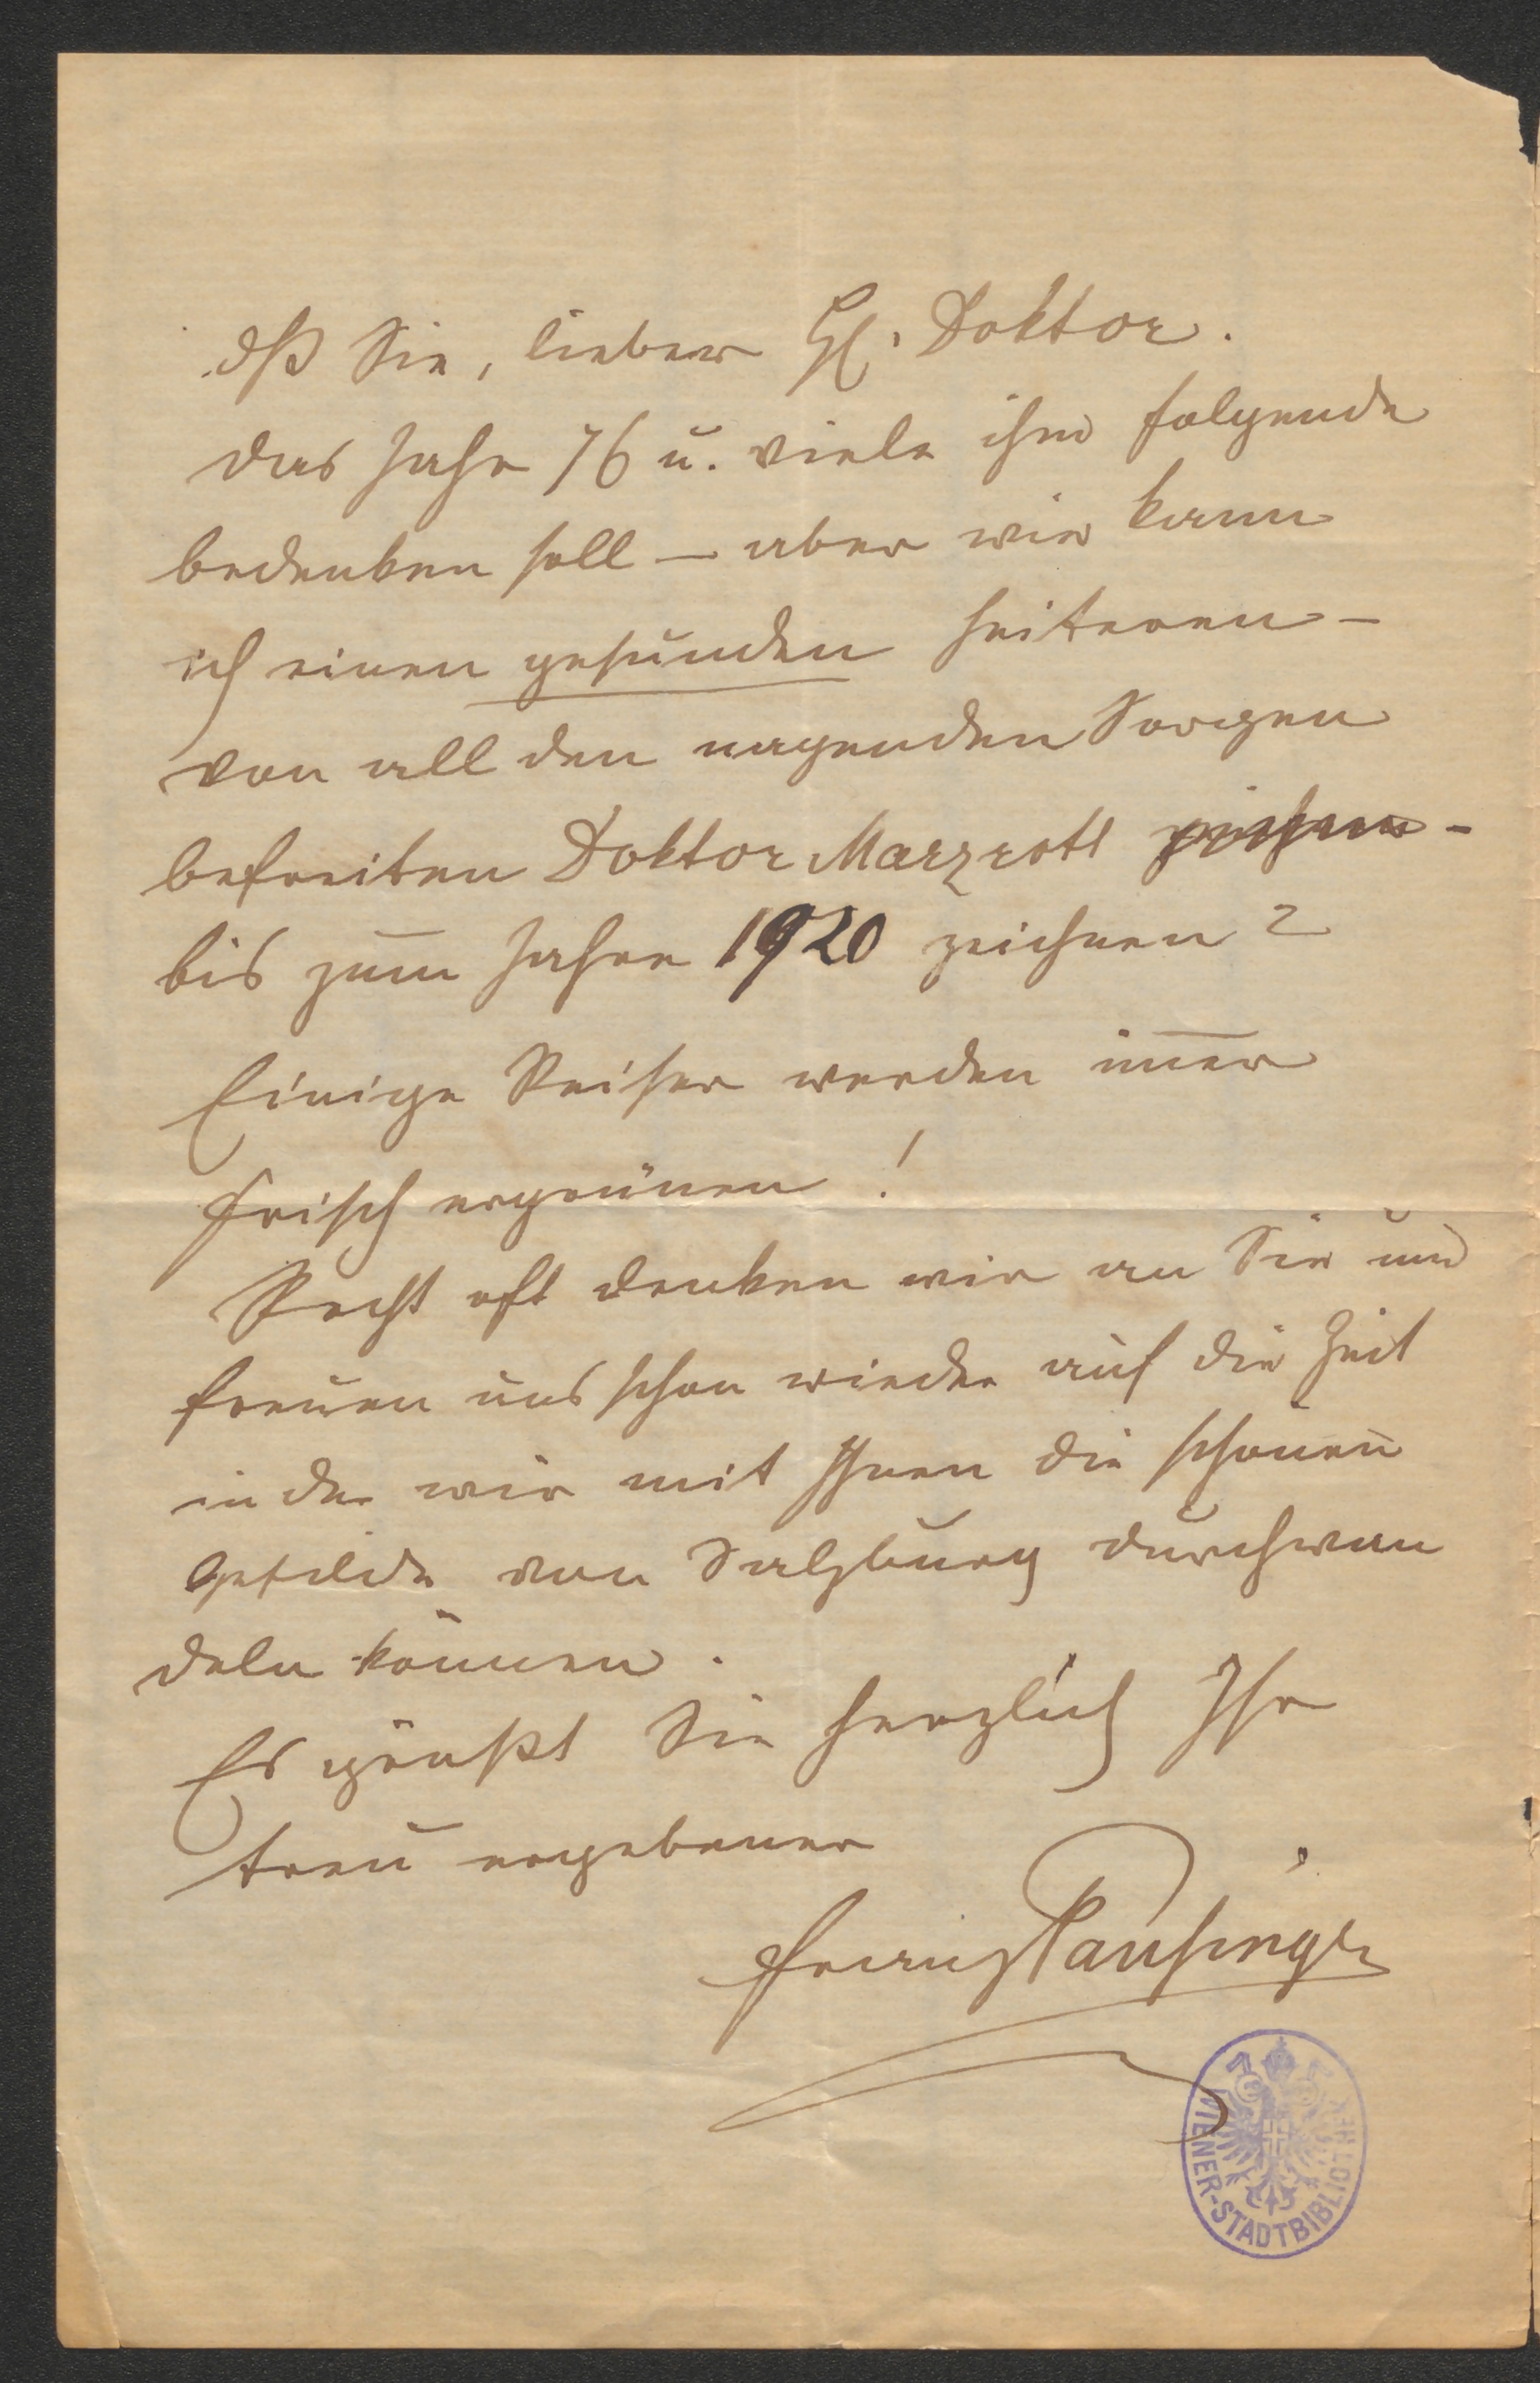 dß Sie, lieber H. Doktor.
das Jahr 76 u. viele ihm folgende
bedenken soll — aber wie kann
ich einen gesunden heiteren —
von all den nagenden Sorgen
befreiten Doktor Märzroth -
bis zum Jahre 1920 zeichnen?
Einige Reiser werden im̄er
frisch ergrünen!
Recht oft denken wir an Sie und
freuen uns schon wieder auf die Zeit
in der wir mit Ihnen die schönen
Gefilde von Salzburg durchwan
deln können.
Es grüßt Sie herzlich Ihr
treu ergebener
Franz Pausinger
WIENER-STADTBIBLIOTHEK